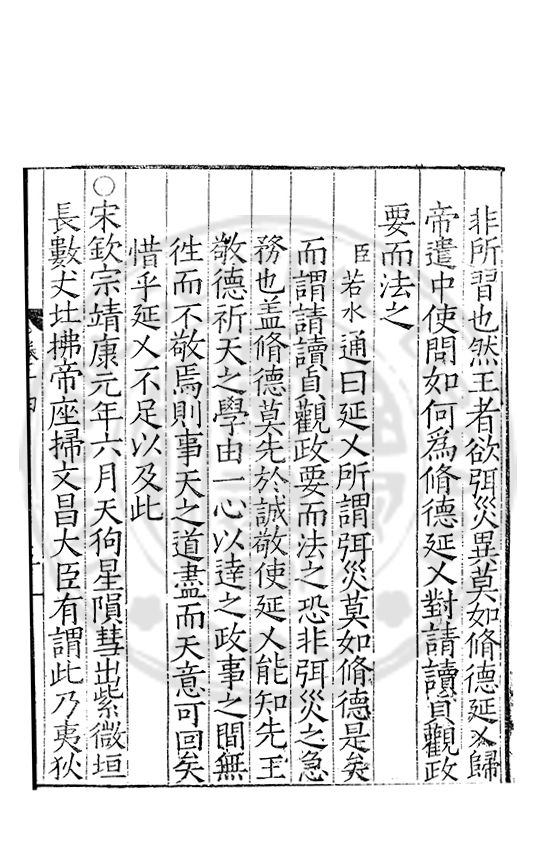 非所習也然王者欲弭災異莫如脩德延乂歸
帝遣中使問如何爲脩德延乂對請讀貞觀政
要而法之
臣若水通曰延乂所謂弭災莫如脩德是矣
而謂請讀貞觀政要而法之恐非弭災之急
務也盖脩德莫先於誠敬使延乂能知先王
敬德祈天之學由一心以達之政事之間無
徃而不敬焉則事天之道盡而天意可回矣
惜乎延乂不足以及此
○宋欽宗靖康元年六月天狗星隕彗出紫微垣
長數丈北拂帝座掃文昌大臣有謂此乃夷狄